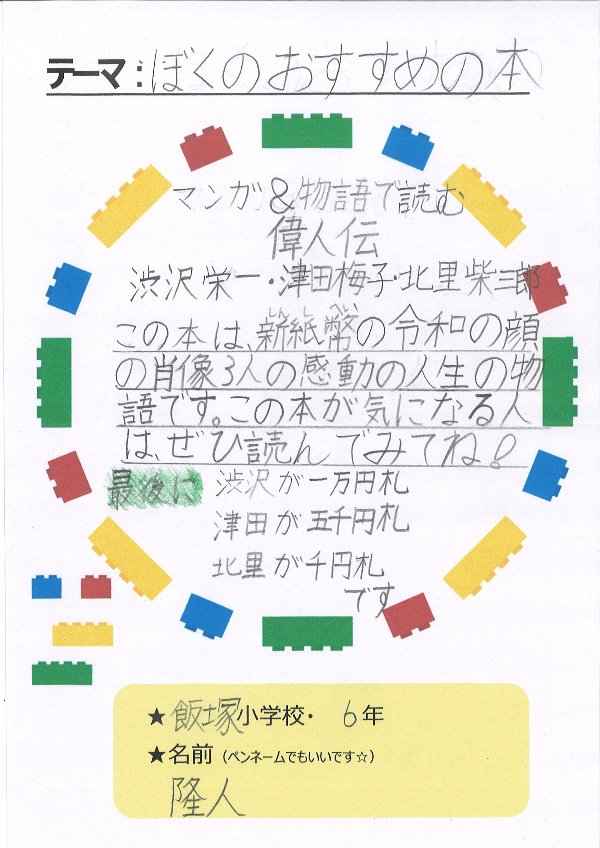 テーマ:ぼくのおすすめの本
マンガ&物語で読む
偉人伝
渋沢栄一・津田梅子・北里柴三郎
この本は、新紙幣の令和の顔
の肖像3人の感動の人生の物
語です。この本が気になる人
は、ぜひ読んでみてね!
最後に 渋沢が一万円札
津田が五千円札
北里が千円札
です
★飯塚小学校・ 6年
★名前(ペンネームでもいいです☆)
隆人